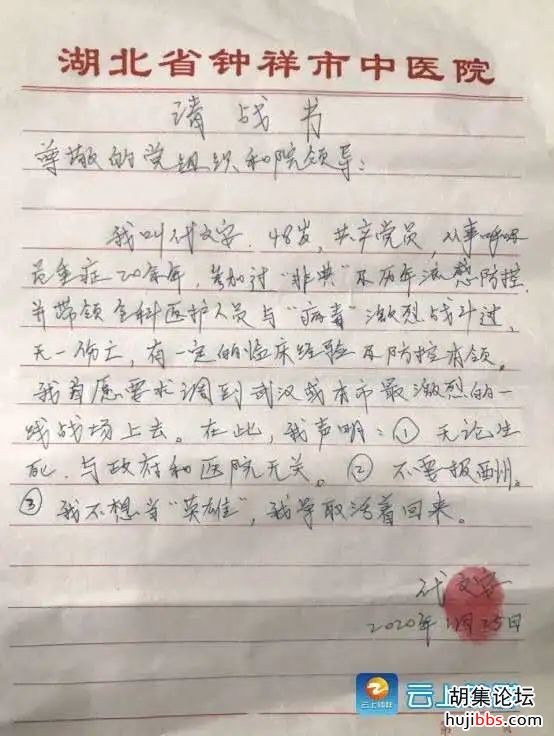 湖北省钟祥市中医院
请战书
尊敬的党组织和院领导：
我叫代文安，48岁，共产党员，从事呼吸
危重症20余年，参加过“非典”及历年流感防控，
并带领全科医护人员与“病毒”激烈战斗过，
无一伤亡，有一定的临床经验及防控本领。
我自愿要求调到武汉或本市最激烈的一
线战场上去。在此，我声明：① 无论生
死，与政府和医院无关。② 不要报酬。
③ 我不想当“英雄”，我争取活着回来。
代文安
2020年1月25日
云上钟祥
云上钟祥
第 页
胡集论坛
hujibbs.com